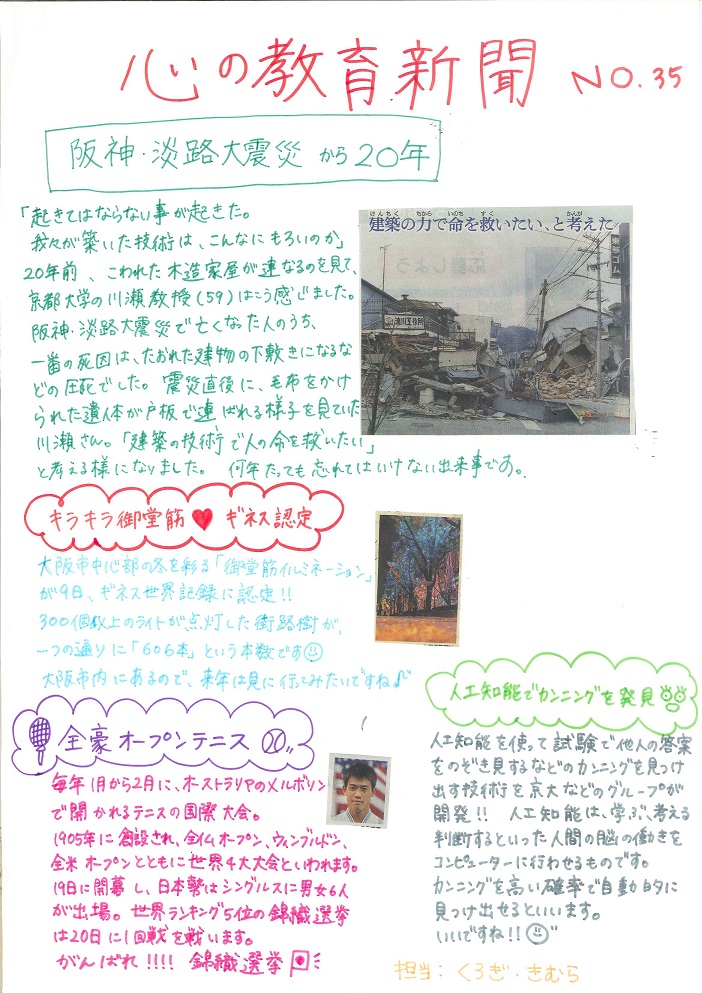 心の教育新聞 NO.35
阪神・淡路大震災 から20年
「起きてはならない事が起きた。
我々が築いた技術は、こんなにもろいのか」
20年前、こわれた木造家屋が連なるのを見て、
京都大学の川瀬教授(59)はこう感じました。
阪神・淡路大震災で亡くなった人のうち、
一番の死因は、たおれた建物の下敷きになるな
どの圧死でした。震災直後に、毛布をかけ
られた遺体が戸板で運ばれる様子を見ていた
川瀬さん。「建築の技術で人の命を救いたい」
と考える様になりました。何年たっても忘れてはいけない出来事です。
けんちく ちから いのち すく かんが
建築の力で命を救いたい、と考えた
キラキラ御堂筋♥ギネス認定
大阪市中心部の冬を彩る「御堂筋イルミネーション」
が9日、ギネス世界記録に認定!!
300個以上のライトが点灯した街路樹が、
一つの通りに「606本」という本数です☺
大阪市内にあるので、来年は見に行ってみたいですね♪
全豪オープンテニス
毎年1月から2月に、オーストラリアのメルボルン
で開かれるテニスの国際大会。
1905年に創設され、全仏オープン、ウィンブルドン、
全米オープンとともに世界4大大会といわれます。
19日に開幕し、日本勢はシングルスに男女6人
が出場。世界ランキング5位の錦織選挙
は20日に1回戦を戦います。
がんばれ!!!! 錦織選挙
人工知能でカンニングを発見
人工知能を使って試験で他人の答案
をのぞき見するなどのカンニングを見つけ
出す技術を京大などのグループが
開発!! 人工知能は、学ぶ、考える
判断するといった人間の脳の働きを
コンピューターに行わせるものです。
カンニングを高い確率で自動的に
見つけ出せるといいます。
いいですね!!☺
担当:くろぎ・きむら